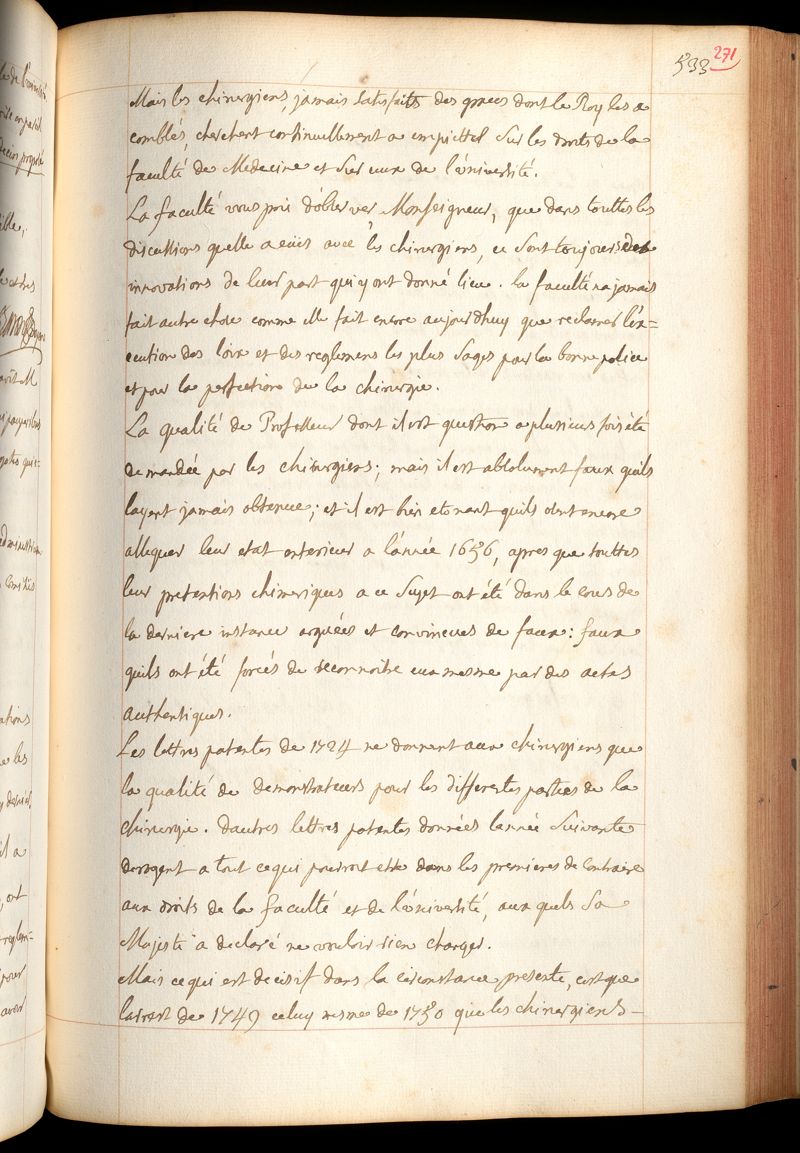 533 271
Mais les chirurgiens, jamais satisfaits des graces dont le Roy les a
comblés, cherchent continuellement a empietter sur les droits de la
faculté de Medecine et sur ceux de l'éniversité.
La faculté vous prie d'observer, Monseigneur, que dans touttes les
discussions quelle a eües avec les chirurgiens, ce sont toujours des
innovations de leur part qui y ont donné lieu. la faculté na jamais
fait autre chose comme elle fait encore aujourdhuy que reclamer l'éx=
=ecution des loix et des reglemens les plus sages pour la bonne police
et pour la perfection de la chirurgie.
La qualité de Professeur dont il est question a plusieurs fois été
demandée par les chirurgiens; mais il est absolument faux quils
layent jamais obtenue; et il est bien etonnant quils osent encore
alleguer leur etat anterieur a l'année 1656, apres que touttes
leur pretentions chimeriques a ce sujet ont été dans le cours de
la derniere instance arguées et convaincues de faux: faux
quils ont été forcés de reconnoitre eux mesme par des actes
authentiques.
Les lettres patentes de 1724 ne donnent aux chirurgiens que
la qualité de demonstrateurs pour les differentes parties de la
chirurgie. dautres lettres patentes données lannée suivante
derogent a tout ce qui pourroit etre dans les premieres de contraire
aux droits de la faculté et de l'éniversité, aux quels Sa
Majesté a declaré ne vouloir rien changer.
Mais ce qui est decisif dans la circonstance presente, cest que
larrest de 1749 celuy mesme de 1750 que les chirurgiens